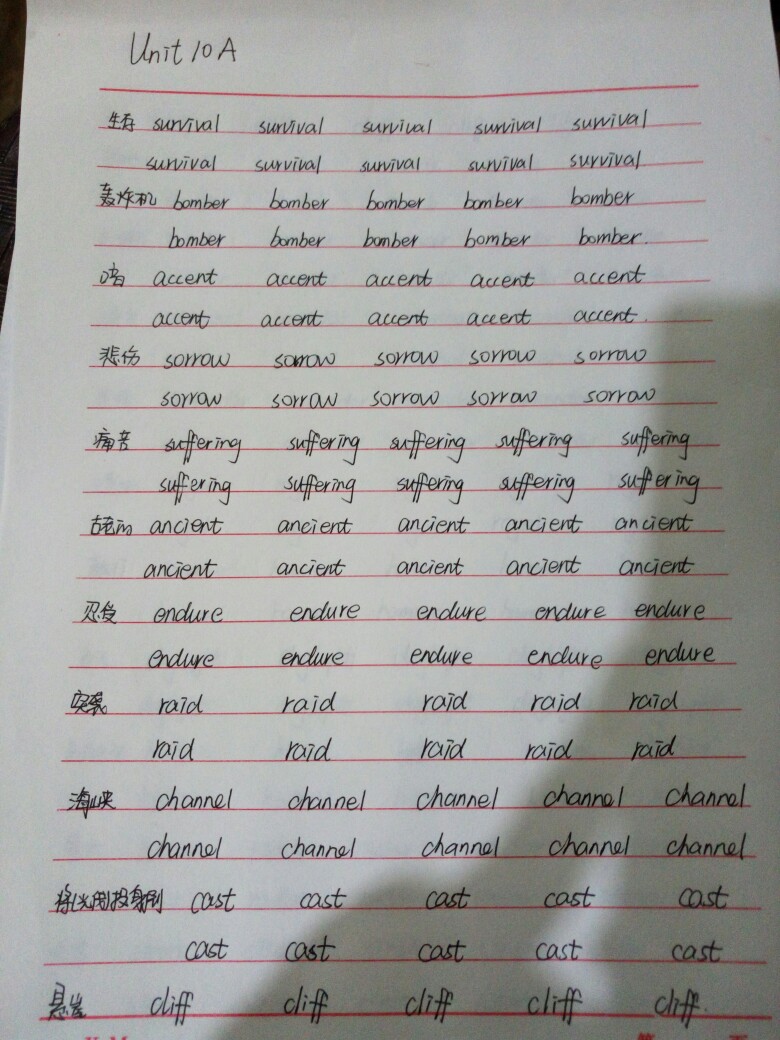 Unit 10 A
生存 survival survival survival survival survival
survival survival survival survival survival
轰炸机 bomber bomber bomber bomber bomber
bomber bomber bomber bomber bomber.
口音 accent accent accent accent accent
accent accent accent accent accent.
悲伤 sorrow sorrow sorrow sorrow sorrow
sorrow sorrow sorrow sorrow sorrow
痛苦 suffering suffering suffering suffering suffering
suffering suffering suffering suffering suffering
古老的 ancient ancient ancient ancient ancient
ancient ancient ancient ancient ancient
忍受 endure endure endure endure endure
endure endure endure endure endure
突袭 raid raid raid raid raid
raid raid raid raid raid
海峡 channel channel channel channel channel
channel channel channel channel channel
cast cast cast cast cast
cast cast cast cast cast
悬崖 cliff cliff cliff cliff cliff.